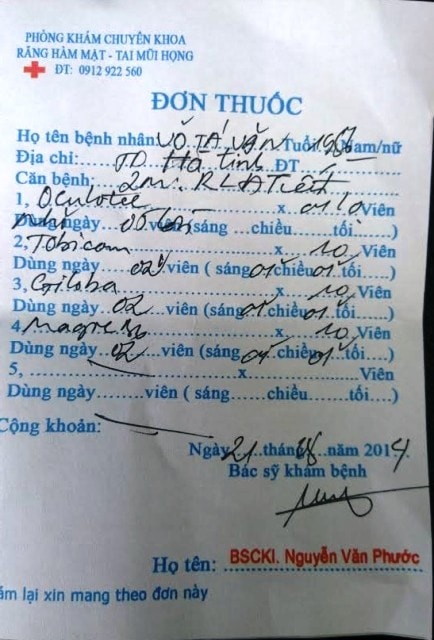 PHÒNG KHÁM CHUYÊN KHOA
RĂNG HÀM MẶT - TAI MŨI HỌNG
ĐT: 0912 922 560
ĐƠN THUỐC
Họ tên bệnh nhân VÕ TÁ VĂN Tuổi Nam/nữ
Địa chỉ: TP Hà Tĩnh ĐT
Căn bệnh: 2m: RL
1, x Viên
Dùng ngày viên (sáng chiều tối )
2, Tobicom x 10 Viên
Dùng ngày 02 viên ( sáng 01 chiều 01 tối )
3, Giloba x 10 Viên
Dùng ngày 02 viên (sáng 01 chiều 01 tối )
4 Magne B6 x 10 Viên
Dùng ngày 02 viên (sáng 01 chiều 01 tối )
5, x Viên
Dùng ngày viên ( sáng chiều tối )
Cộng khoản:
Ngày 21 tháng năm 2014
Bác sỹ khám bệnh
Họ tên: BSCKI. Nguyễn Văn Phước
ám lại xin mang theo đơn này